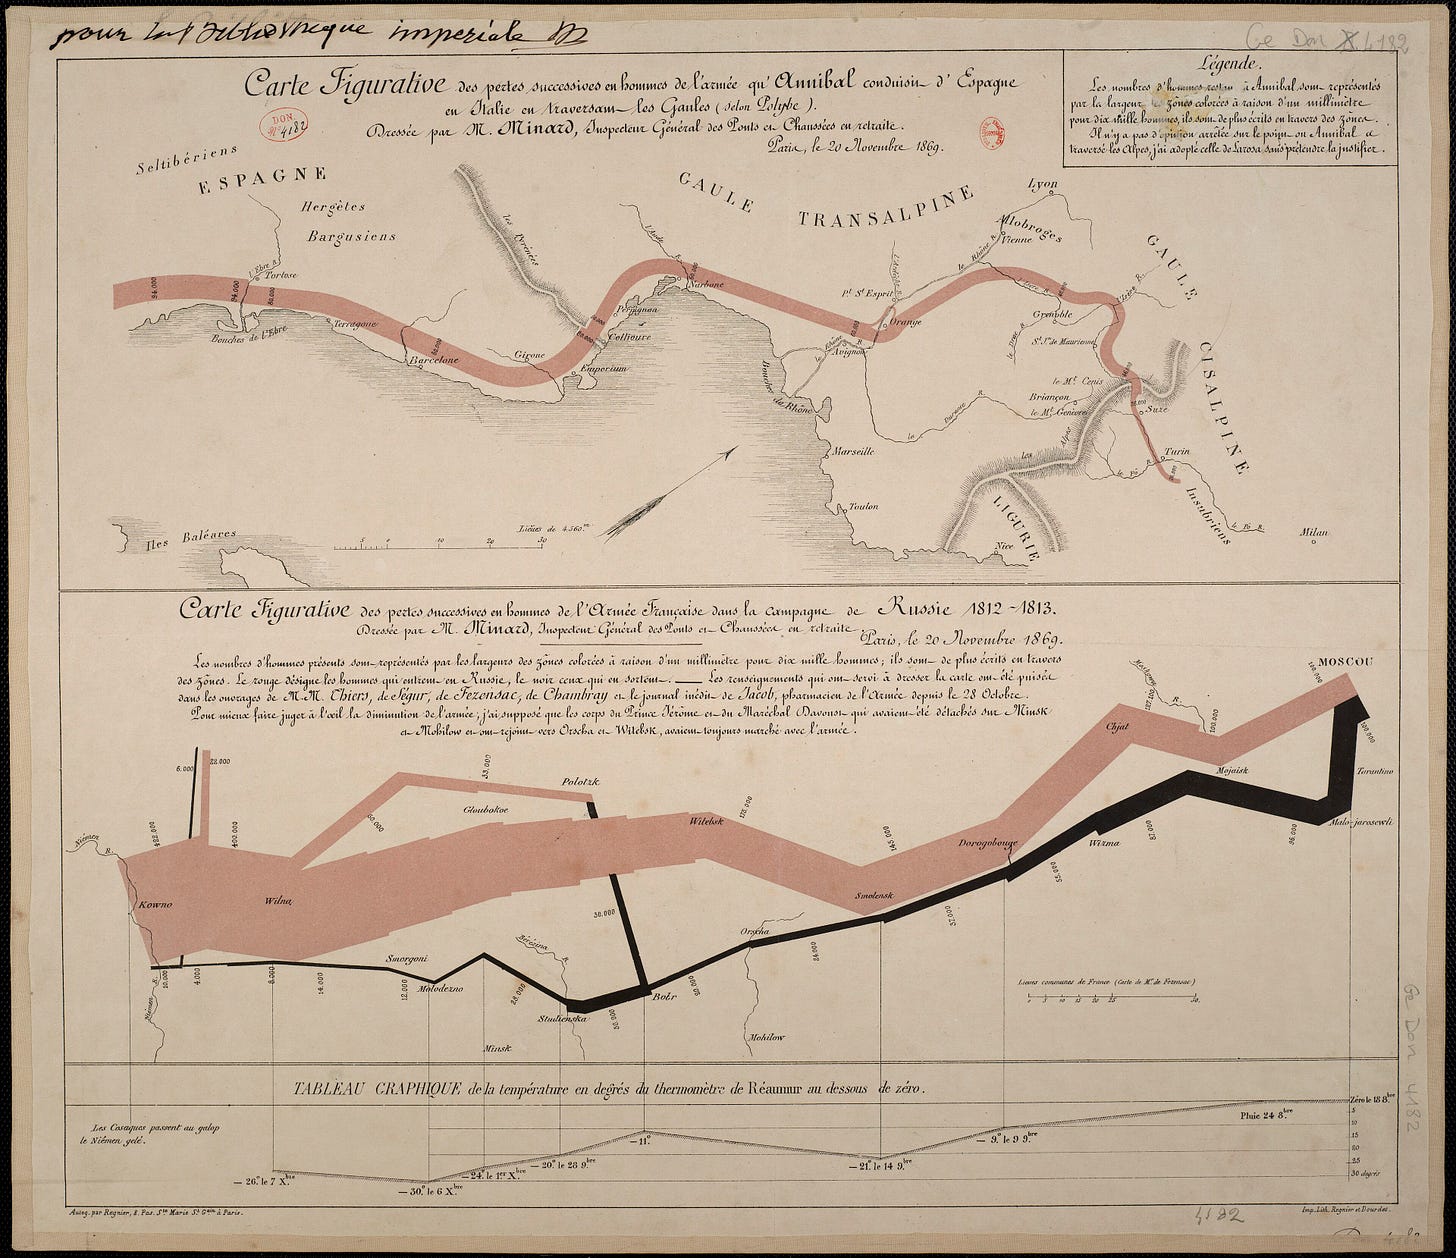 pour la Bibliothèque impériale
Ge Don 4182
Carte Figurative des pertes successives en hommes de l'armée qu'Annibal conduisit d'Espagne
en Italie en traversant les Gaules (selon Polybe).
Dressée par M. Minard, Inspecteur Général des Ponts et Chaussées en retraite.
Paris, le 20 Novembre 1869.
DON.
Nº 4182
Légende.
Les nombres d'hommes restant à Annibal sont représentés
par la largeur des zônes colorées à raison d'un millimètre
pour dix mille hommes, ils sont de plus écrits en travers des zônes.
Il n'y a pas d'opinion arrêtée sur le point où Annibal a
traversé les Alpes, j'ai adopté celle de Larosa sans prétendre la justifier.
Seltibériens
ESPAGNE
Hergètes
Bargusiens
les Pyrénées
GAULE TRANSALPINE
Lyon
Allobroges
Vienne
GAULE CISALPINE
l'Ebre R.
Tortose
94.000
94.000
Bouches de l'Ebre
Terragone
Barcelone
Girone
Emporium
Collioure
Perpignan
l'Aude R.
Narbone
le Rhône R.
Pt. St Esprit
Orange
Avignon
le Rhône R.
Bouches du Rhône
Isère R.
Grenoble
le Drac R.
St. Jn de Maurienne
le Mt. Cenis
Briançon
le Mt. Genèvre
Suze
la Durance R.
les Alpes
Turin
le Pô R.
Insubriens
le Pô R.
Milan
Marseille
Toulon
LIGURIE
Nice
Iles Baléares
Lieues de 4.560.m
5 0 10 20 30
Carte Figurative des pertes successives en hommes de l'Armée Française dans la campagne de Russie 1812-1813.
Dressée par M. Minard, Inspecteur Général des Ponts et Chaussées en retraite
Paris, le 20 Novembre 1869.
Les nombres d'hommes présents sont représentés par les largeurs des zônes colorées à raison d'un millimètre pour dix mille hommes; ils sont de plus écrits en travers
des zônes. Le rouge désigne les hommes qui entrent en Russie, le noir ceux qui en sortent. — Les renseignements qui ont servi à dresser la carte ont été puisés
dans les ouvrages de M.M. Thiers, de Ségur, de Fezensac, de Chambray et le journal inédit de Jacob, pharmacien de l'Armée depuis le 28 Octobre.
Pour mieux faire juger à l'œil la diminution de l'armée, j'ai supposé que les corps du Prince Jérôme et du Maréchal Davoust qui avaient été détachés sur Minsk
et Mohilow et ont rejoint vers Orscha et Witebsk, avaient toujours marché avec l'armée.
MOSCOU
100.000
Moskowa R.
127.100
100.000
Chjat
Mojaisk
100.000
Tarantino
Malo-jarosewli
96.000
87.000
Wizma
Dorogobouge
55.000
145.000
Smolensk
37.000
175.000
Witebsk
Polotzk
33.000
Gloubokoe
60.000
6.000
22.000
Niémen R.
422.000
400.000
Kowno
Wilna
30.000
Orscha
24.000
Bérézina R.
Smorgoni
Molodezno
10.000
4.000
8.000
14.000
12.000
28.000
Studienska
50.000
Bobr
20.000
Niémen R.
Minsk
Mohilow
Lieues communes de France (Carte de Mr. de Fezensac)
TABLEAU GRAPHIQUE de la température en degrés du thermomètre de Réaumur au dessous de zéro.
Les Cosaques passent au galop
le Niémen gelé.
— 26.º le 7 X.bre
— 30.º le 6 X.bre
— 24.º le 1.er X.bre
— 20.º le 28 9.bre
— 11.º
— 21.º le 14 9.bre
— 9.º le 9 9.bre
Pluie 24 8.bre
Zéro le 18 8.bre
5
10
15
20
25
30 degrés
Ge Don 4182
Autog. par Regnier, 8. Pas. Ste Marie St Gain à Paris.
Imp. Lith. Regnier et Dourdet.
4182